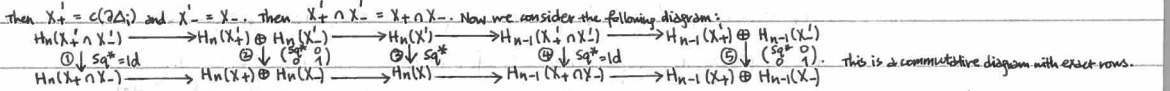 Then X'₊ = c(∂Δᵢ) and X'₋ = X₋. Then X'₊ ∩ X'₋ = X₊ ∩ X₋. Now we consider the following diagram:
Hn(X'₊ ∩ X'₋) ⟶ Hn(X'₊) ⊕ Hn(X'₋) ⟶ Hn(X') ⟶ Hn-1(X'₊ ∩ X'₋) ⟶ Hn-1(X'₊) ⊕ Hn-1(X'₋)
① ↓ Sq*=Id ② ↓ (Sq* 0 0 1) ③ ↓ Sq* ④ ↓ Sq*=Id ⑤ ↓ (Sq* 0 0 1). This is a commutative diagram with exact rows.
Hn(X₊ ∩ X₋) ⟶ Hn(X₊) ⊕ Hn(X₋) ⟶ Hn(X) ⟶ Hn-1(X₊ ∩ X₋) ⟶ Hn-1(X₊) ⊕ Hn-1(X₋)